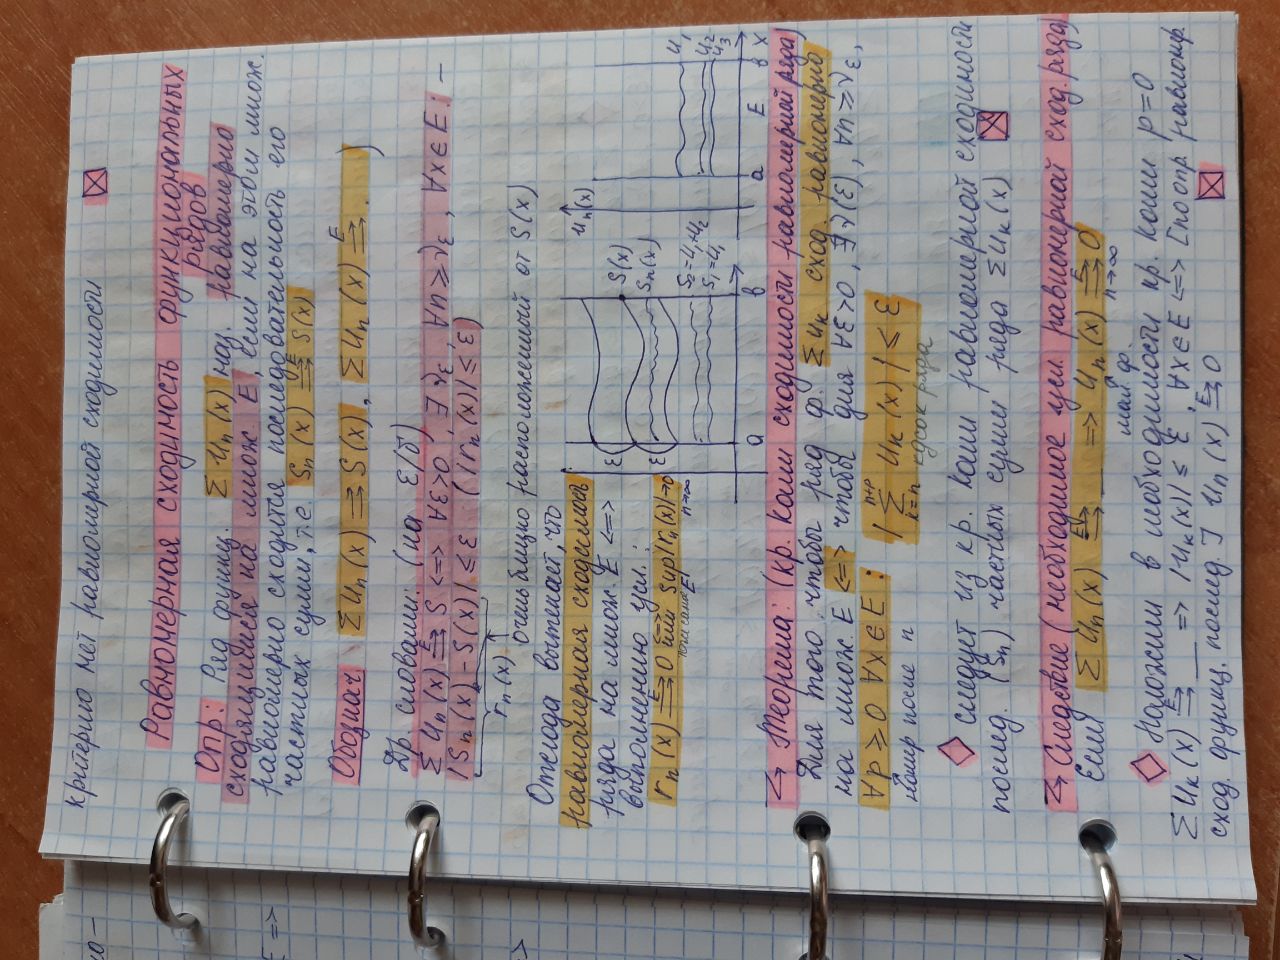 критерию нет равномерной сходимости
Равномерная сходимость функциональных
рядов
Опр: Ряд функц. Σ Un(x) наз. равномерно
сходящимися на множ. E, если на этом множ.
равномерно сходится последовательность его
частных сумм, т.е. Sn(x) ⇉ᴱ S(x)
Обознач Σ Un(x) ⇉ S(x), Σ Un(x) ⇉ᴱ . )
Др. словами: (на ε/δ)
Σ Un(x) ⇉ᴱ S <=> ∀ε>0, ∃ νε, ∀n≥νε, ∀x∈E: –
|Sn(x) – S(x)| ≤ ε (|rn(x)| ≤ ε)
rn(x)
очень близко расположенный от S(x)
Отсюда вытекает, что
равномерная сходимость
ряда на множ. E <=>
выполнению усл.:
rn(x) ⇉ᴱ 0 <=> или sup|rn(x)|→0
E n→∞
ε
ε
S(x)
Sn(x)
S2=U1+U2
S1=U1
a
b
Un(x)
U1
U2
U3
a E b x
Теорема: (кр. Коши сходимости равномерной ряда)
Для того, чтобы ряд ф. Σuk сход. равномерно
на множ. E <=> чтобы для ∀ε>0, ∃ν(ε), ∀n≥νε,
∀p≥0 ∀x∈E: | Σ(k=n, n+p) Uk(x) | ≤ ε
номер после n кусок ряда
следует из кр. Коши равномерной сходимости
послед. (Sn) частных сумм ряда ΣUk(x)
Следствие (необходимое усл. равномерной сход. ряда)
Если Σ Un(x) ⇉ᴱ __ => Un(x) ⇉ᴱ 0
n→∞
Наложим в необходимости кр. Коши p=0
ΣUk(x) ⇉ᴱ __ => |Uk(x)| ≤ ε, ∀x∈E <=> [по опр. равномер.
сход. функц. послед.] Un(x) ⇉ᴱ 0